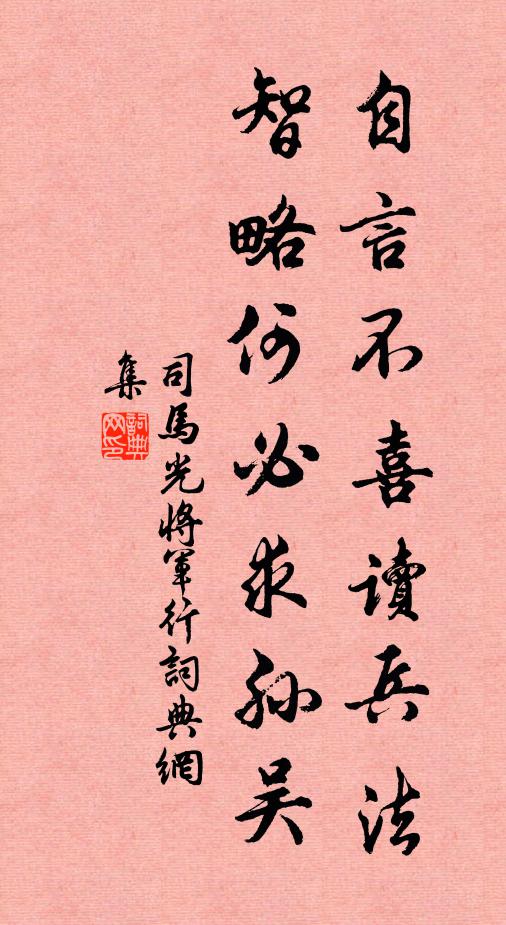 自言不喜讀兵法
智略何必求孫吴
司馬光將軍行詞典網
集
詞典
网印